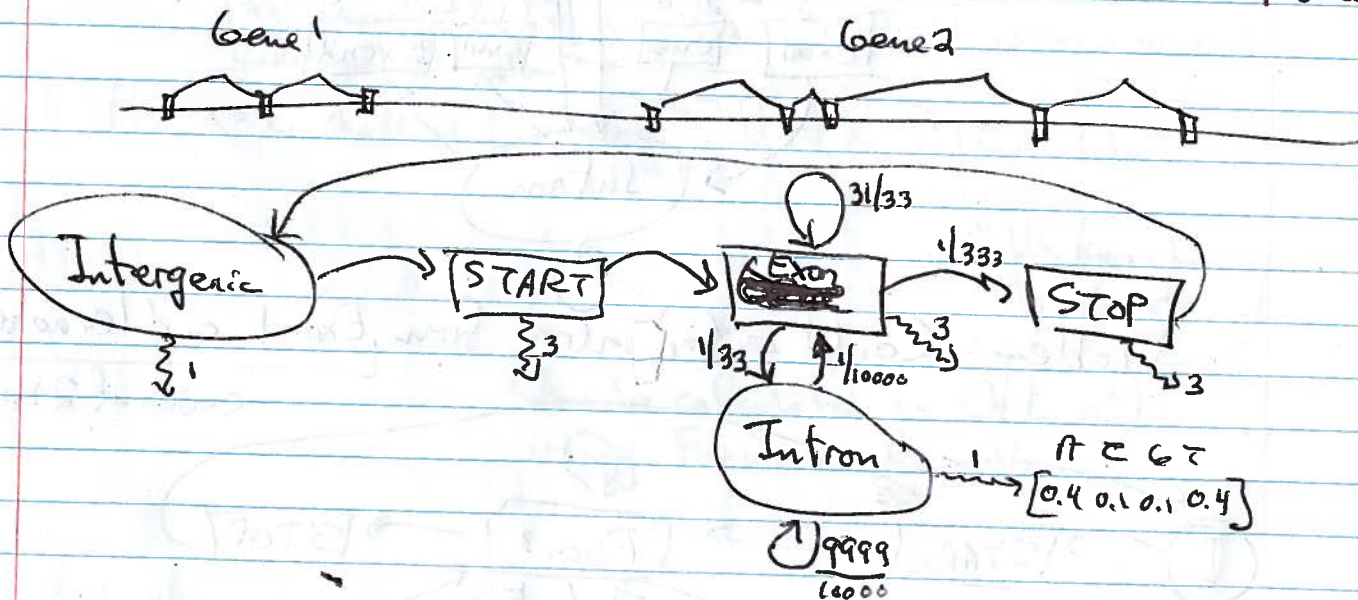 Gene 1 Gene 2
31/33
Intergenic START Exon 1/333 STOP
1 3 1/33 1/10000 3 3
Intron 1 A C G T
[0.4 0.1 0.1 0.4]
9999
10000